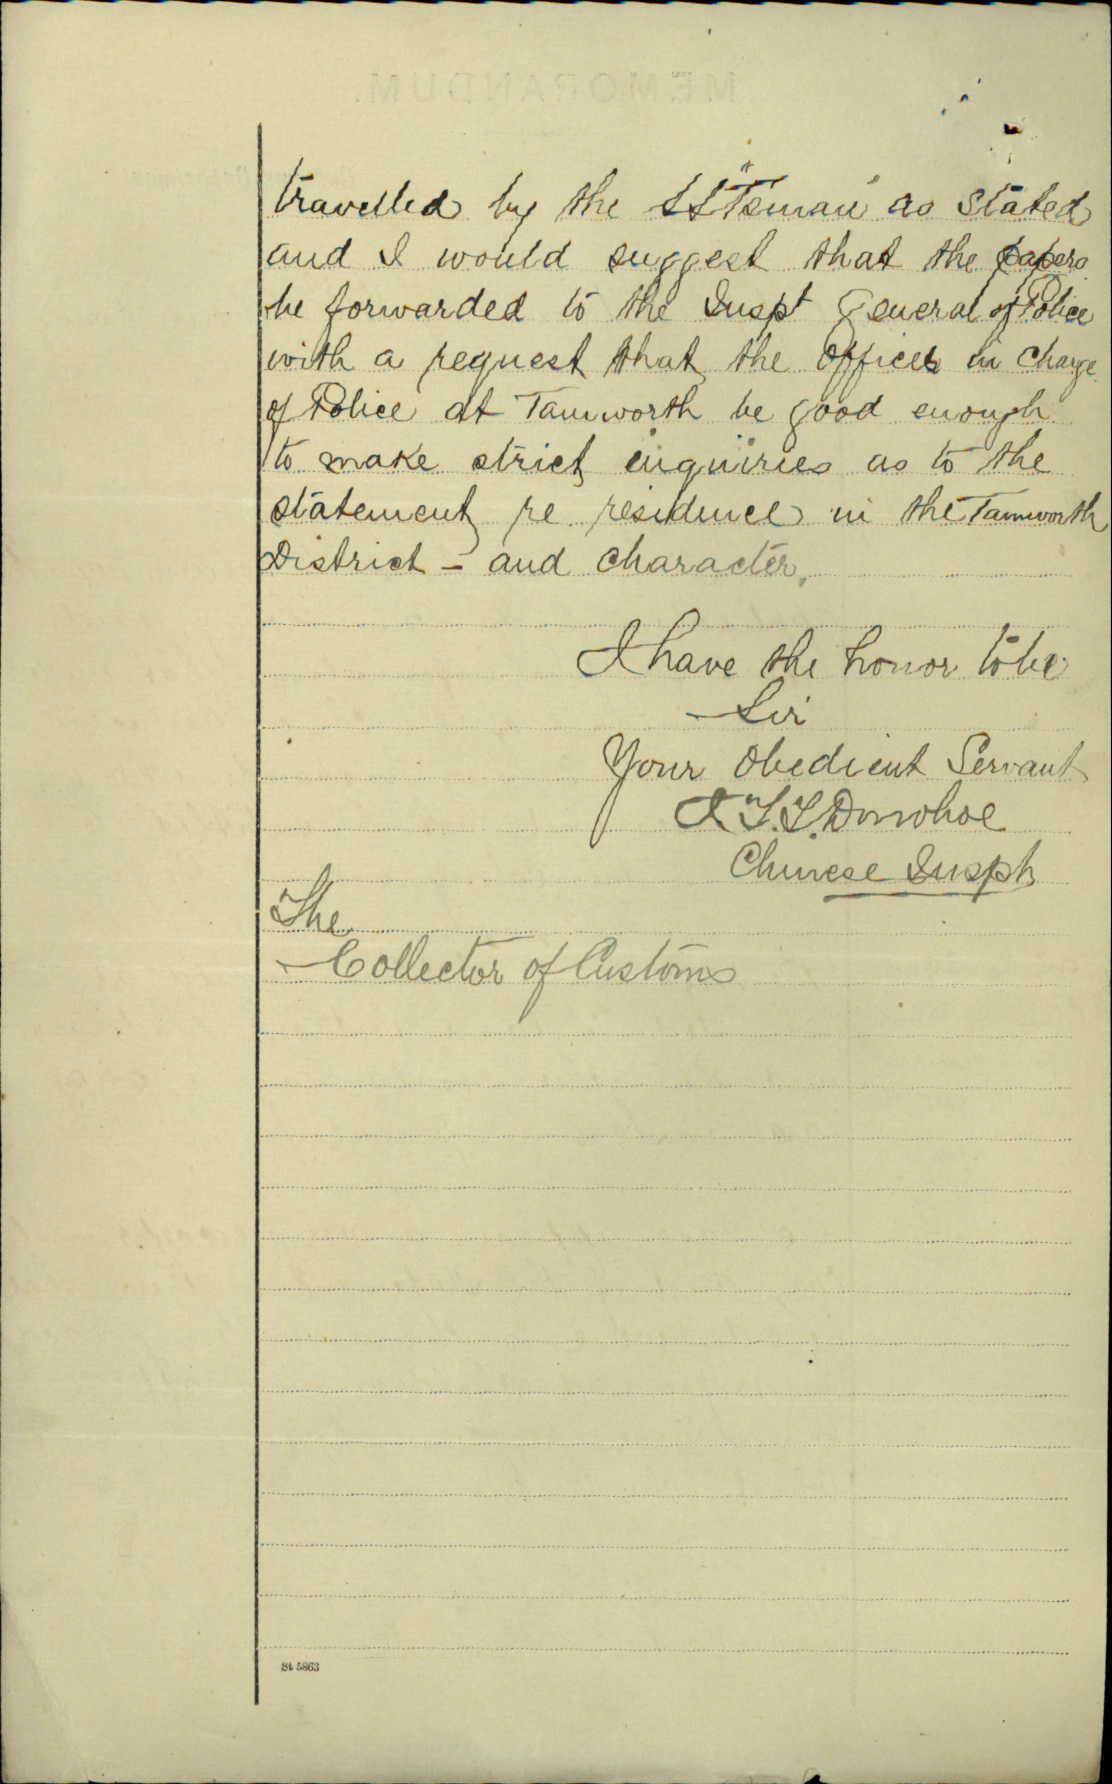 travelled by the SS "Tsinan" as stated
and I would suggest that the papers
be forwarded to the Inspt General of Police
with a request that the officer in charge
of Police at Tamworth be good enough
to make strict enquiries as to the
statement re residence in the Tamworth
District - and character.
I have the honor to be
Sir
Your Obedient Servant
J.T.T. Donohoe
Chinese Inspt
The
Collector of Customs
St 5863